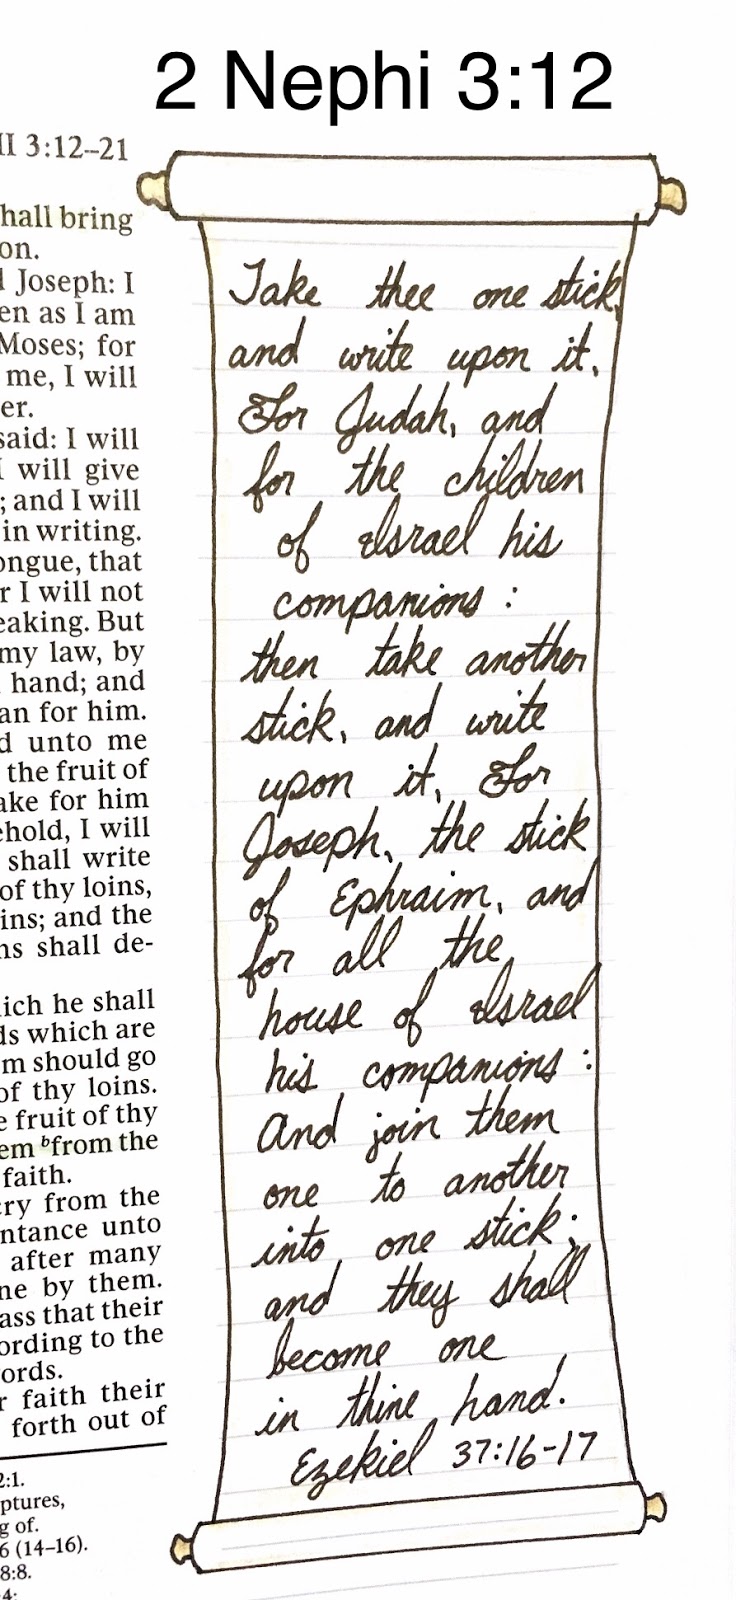 2 Nephi 3:12
II 3:12–21
hall bring
on.
Joseph: I
en as I am
Moses; for
me, I will
er.
said: I will
I will give
; and I will
in writing.
ongue, that
r I will not
eaking. But
my law, by
hand; and
an for him.
d unto me
the fruit of
ake for him
ehold, I will
shall write
of thy loins,
ins; and the
ns shall de-
ich he shall
ds which are
m should go
of thy loins.
e fruit of thy
em ᵇfrom the
faith.
cry from the
ntance unto
after many
ne by them.
ass that their
ording to the
ords.
r faith their
forth out of
2:1.
ptures,
g of.
6 (14–16).
8:8.
4:
Take thee one stick,
and write upon it,
For Judah, and
for the children
of Israel his
companions :
then take another
stick, and write
upon it, For
Joseph, the stick
of Ephraim, and
for all the
house of Israel
his companions :
And join them
one to another
into one stick;
and they shall
become one
in thine hand.
Ezekiel 37:16-17